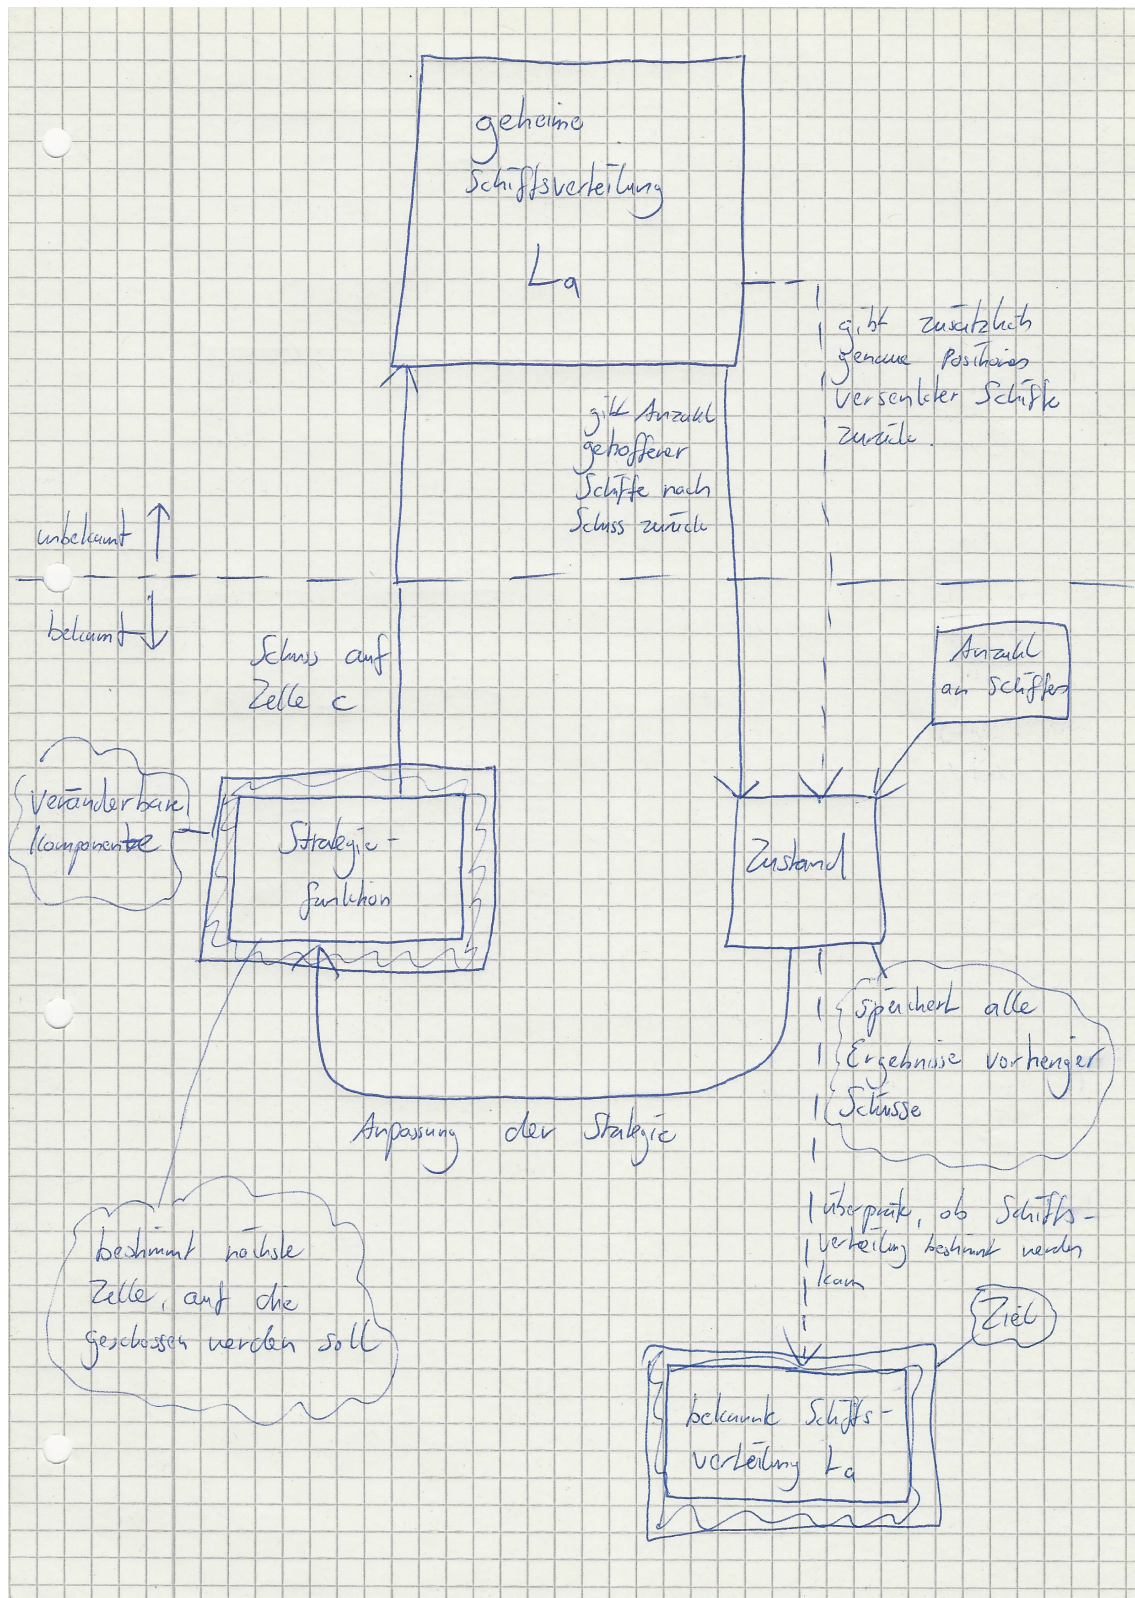 geheime
Schiffsverteilung
La
gibt zusätzlich
genaue Positionen
versenkter Schiffe
zurück.
gibt Anzahl
getroffener
Schiffe nach
Schuss zurück
unbekannt
bekannt
Schuss auf
Zelle c
Anzahl
an Schiffen
Veränderbare
Komponente
Strategie-
funktion
Zustand
speichert alle
Ergebnisse vorheriger
Schüsse
Anpassung der Stategie
überprüfe, ob Schiffs-
verteilung bestimmt werden
kann
bestimmt nächste
Zelle, auf die
geschossen werden soll
Ziel
bekannte Schiffs-
verteilung La